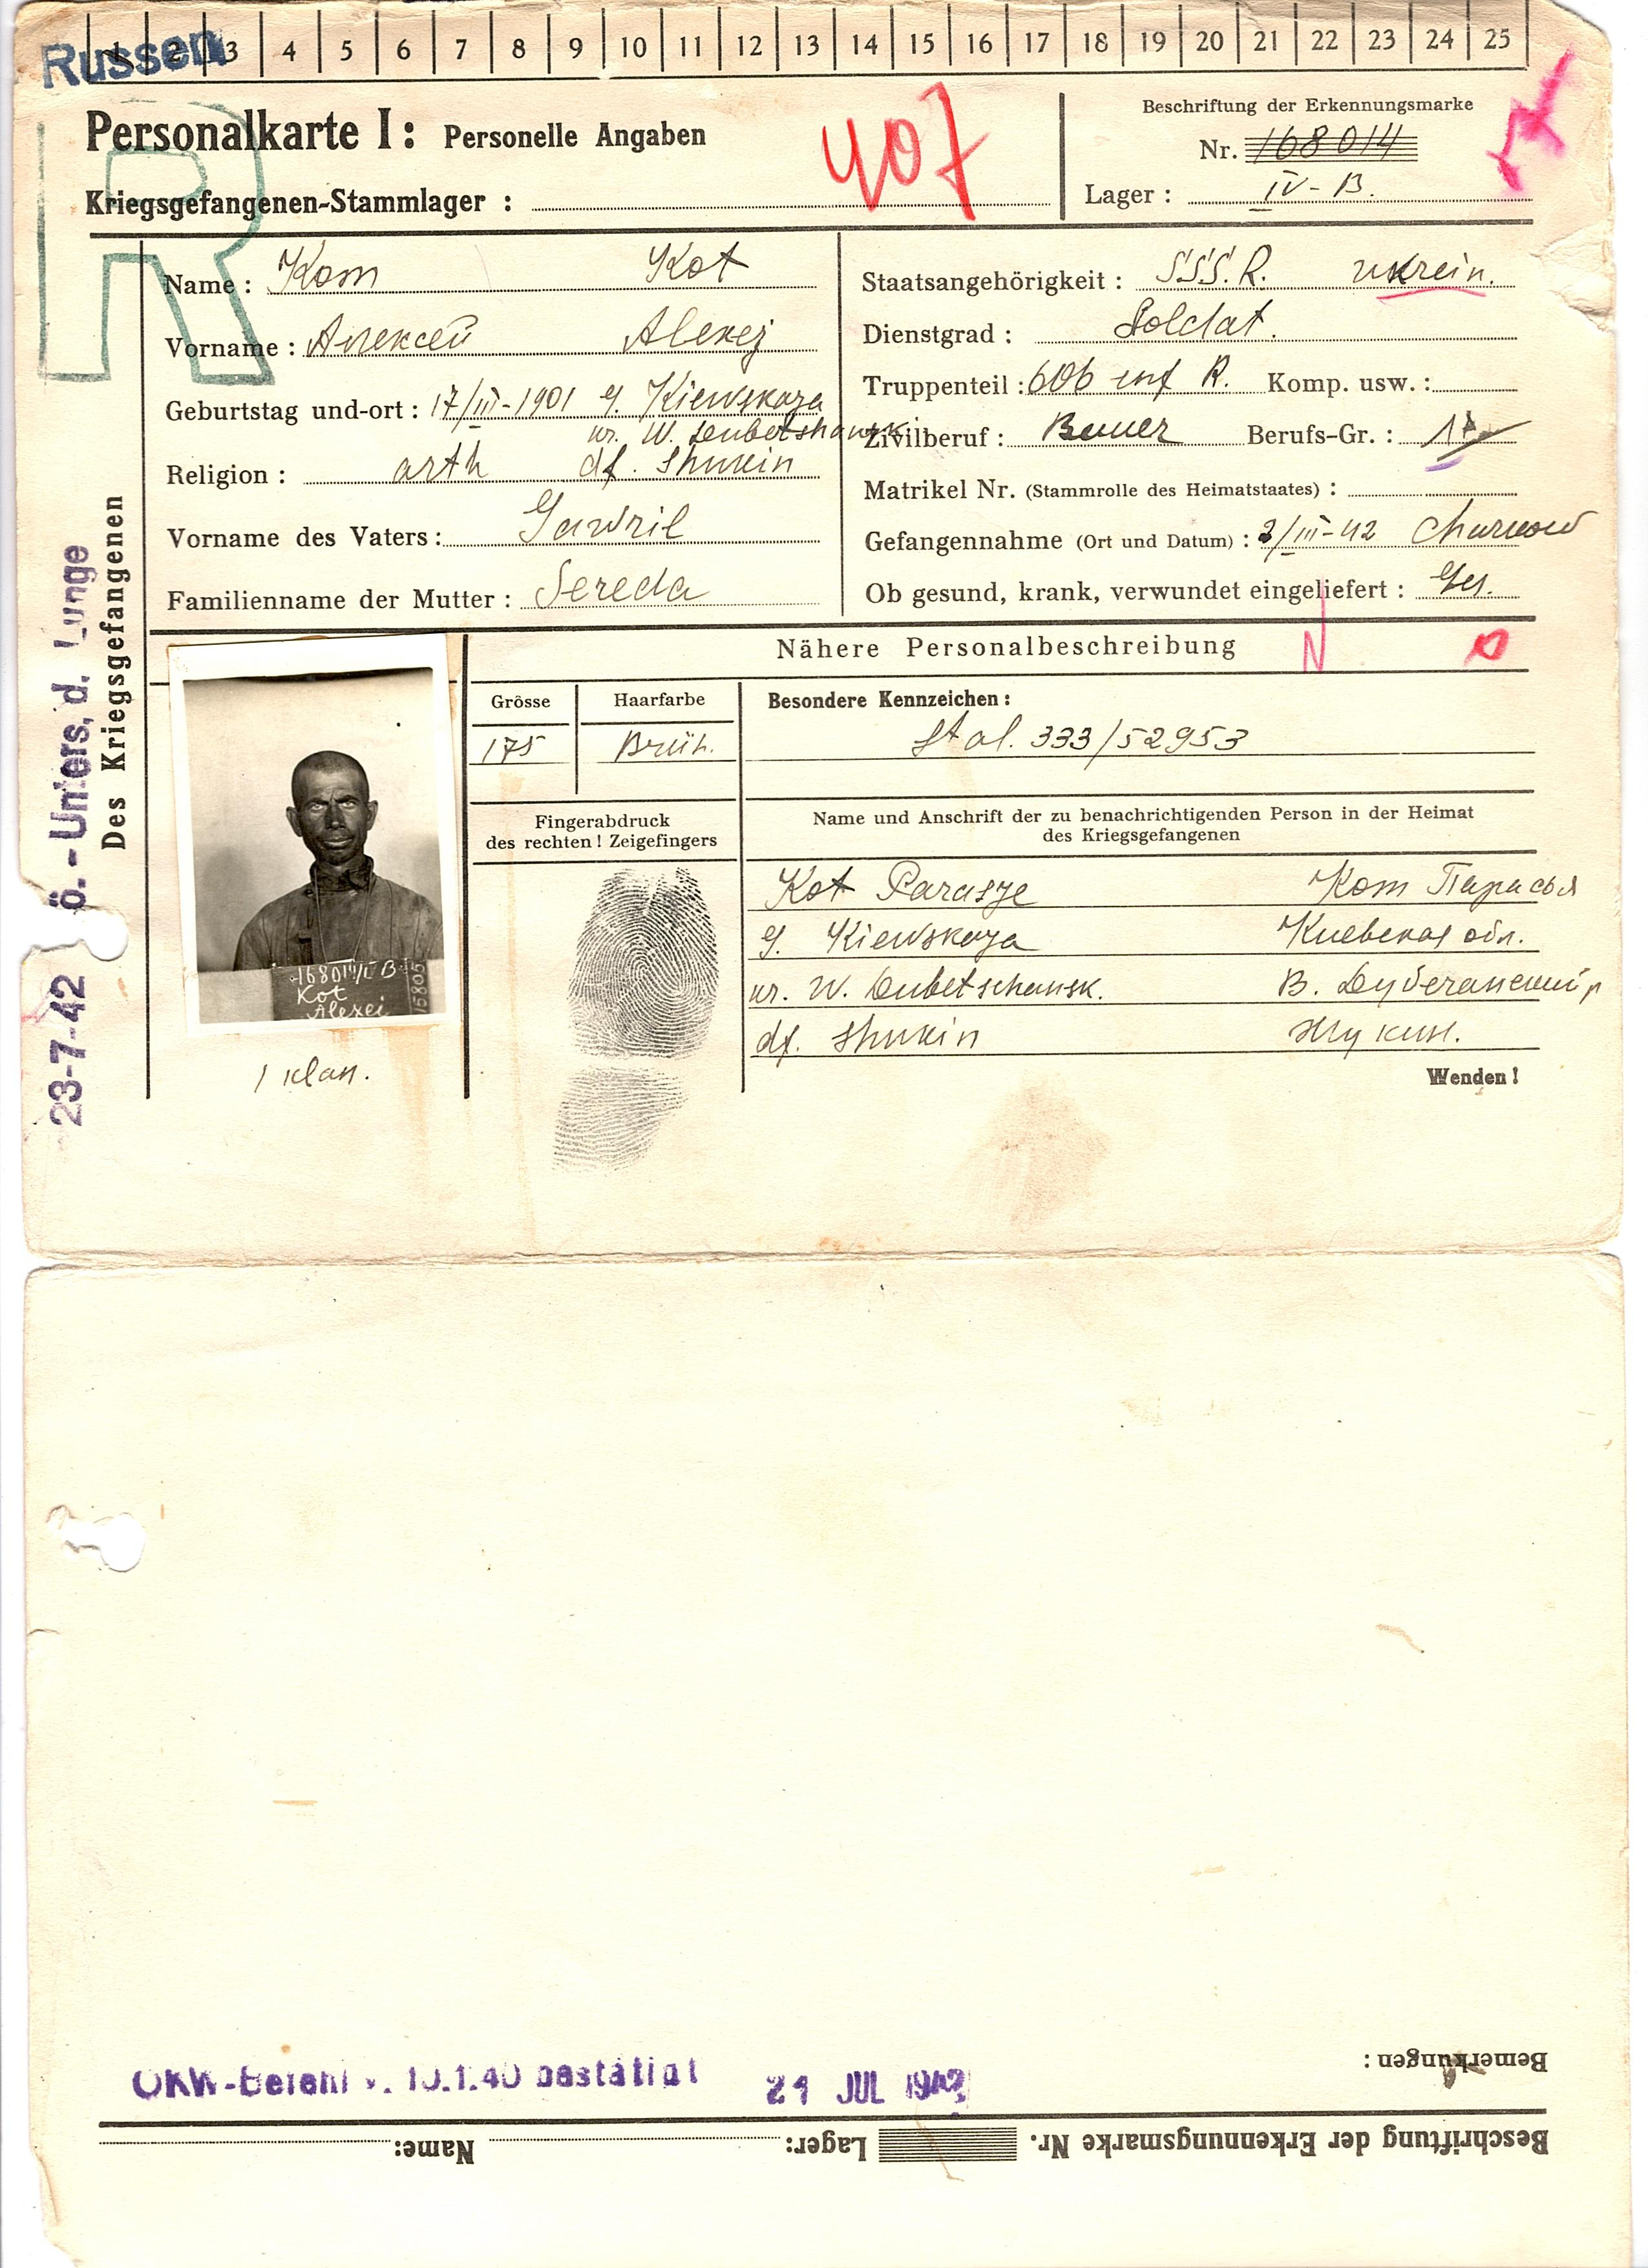 Russen
1 2 3 4 5 6 7 8 9 10 11 12 13 14 15 16 17 18 19 20 21 22 23 24 25
R
Personalkarte I: Personelle Angaben
407
Beschriftung der Erkennungsmarke
Nr. 168014
Kriegsgefangenen-Stammlager :
Lager : IV-B.
Name : Кот Kot
Vorname : Алексей Alexej
Geburtstag und-ort : 17/III-1901 g. Kiewskaya
ur. W. Dubetschansk.
Religion : orth df. Shukin
Vorname des Vaters : Gawril
Familienname der Mutter : Sereda
Staatsangehörigkeit : SSS.R. ukrein.
Dienstgrad : Soldat.
Truppenteil : 606 inf R. Komp. usw. :
Zivilberuf : Bauer Berufs-Gr. :
Matrikel Nr. (Stammrolle des Heimatstaates) :
Gefangennahme (Ort und Datum) : 2/III-42
Ob gesund, krank, verwundet eingeliefert : Ges.
Des Kriegsgefangenen
23-7-42 ö.-Unters. d. Lunge
Nähere Personalbeschreibung
N
Grösse
175
Haarfarbe
Besondere Kennzeichen :
Stal. 333/52953
Fingerabdruck
des rechten ! Zeigefingers
Name und Anschrift der zu benachrichtigenden Person in der Heimat
des Kriegsgefangenen
Kot Parasje Кот Парасья
g. Kiewskaya Киевская обл.
ur. W. Dubetschansk.
df. Shukin Жукин.
Wenden !
Kot
Alexei
15805
OKW-Befehl v. 10.1.40 bestätigt
21 JUL 1942
Bemerkungen :
Beschriftung der Erkennungsmarke Nr. Lager: Name: